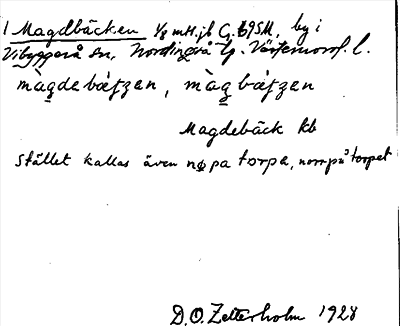 1 Magdbäcken 1/8 mtl. jb C. 695M, by i
Vibyggerå sn, Nordingrå tg. Västernorrl. l.
màgdebátzen, màgbátzen
Magdebäck kb
Stället kallas även nøpa torpe, norrpå torpet
D. O. Zetterholm 1928